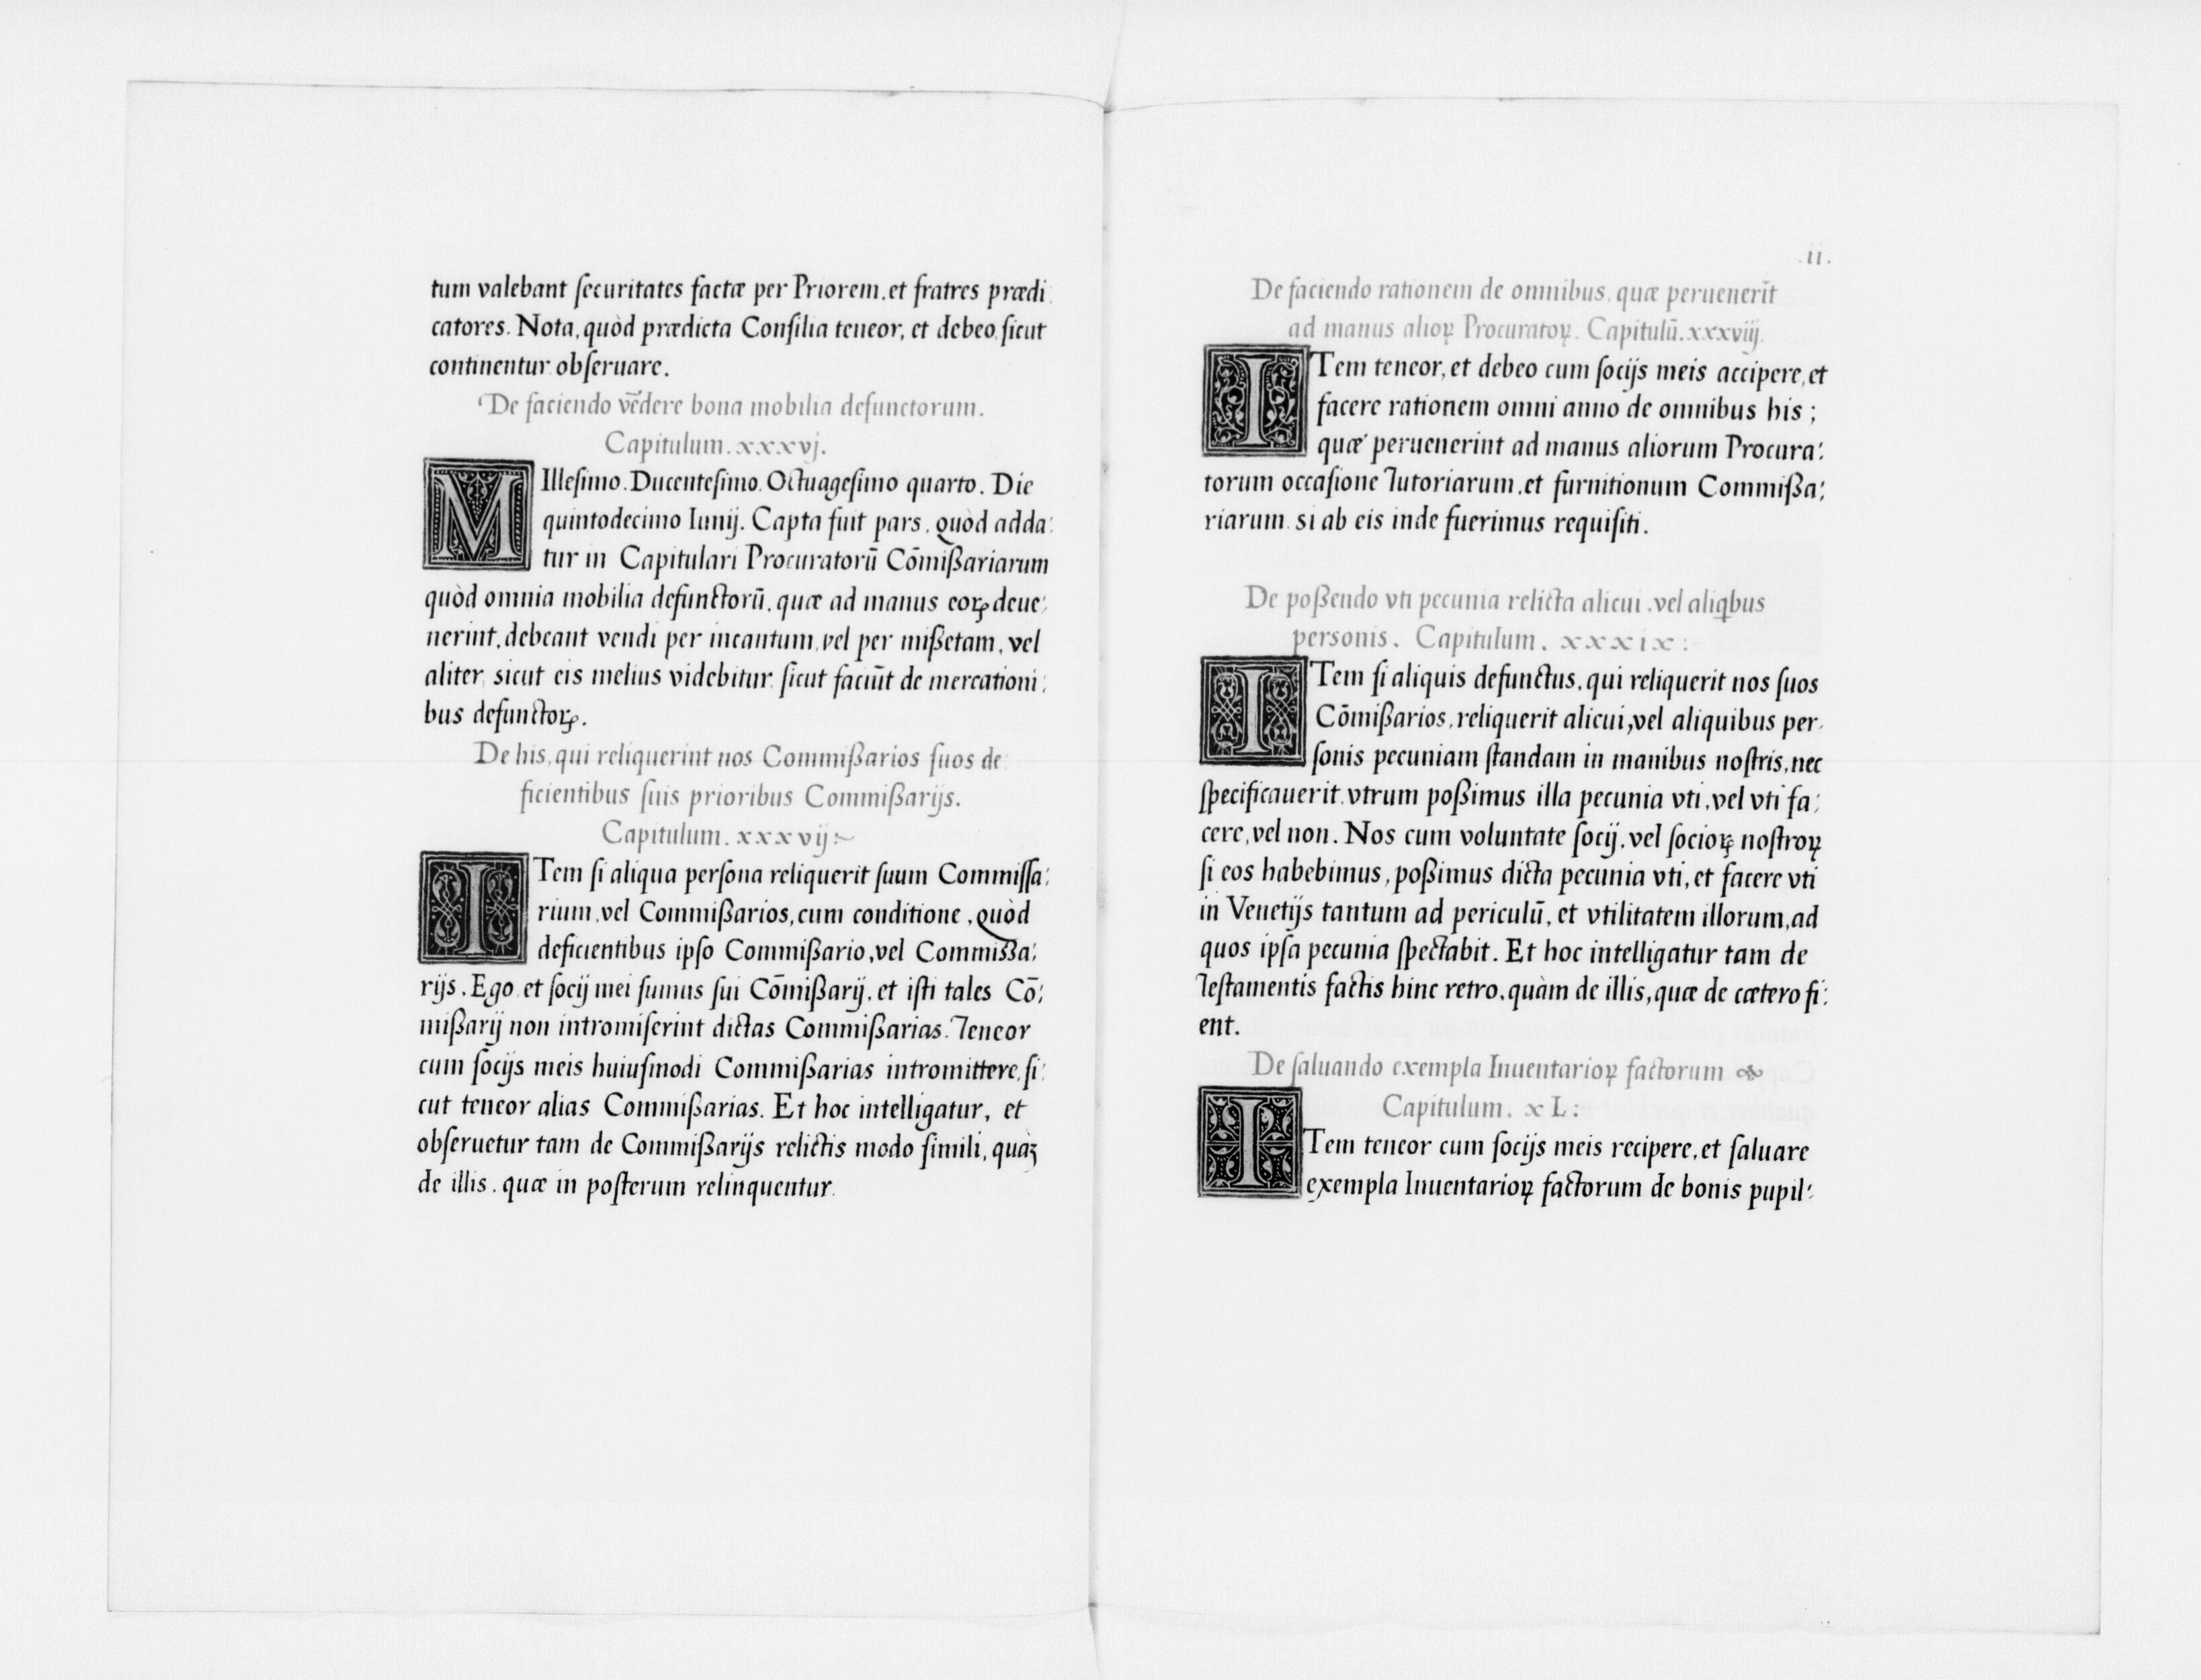 tum valebant securitates factæ per Priorem, et fratres prædi
catores. Nota, quòd prædicta Consilia teneor, et debeo, sicut
continentur obseruare.
De faciendo vēdere bona mobilia defunctorum.
Capitulum. xxxvj.
MIllesimo. Ducentesimo. Octuagesimo quarto. Die
quintodecimo Iunij. Capta fuit pars, quòd adda:
tur in Capitulari Procuratorū Cōmißariarum
quòd omnia mobilia defunctorū, quæ ad manus eoꝝ deue:
nerint, debeant vendi per incantum, vel per mißetam, vel
aliter, sicut eis melius videbitur, sicut faciūt de mercationi:
bus defunctoꝝ.
De his, qui reliquerint nos Commißarios suos de
ficientibus suis prioribus Commißarijs.
Capitulum. xxxvij:~
ITem si aliqua persona reliquerit suum Commissa:
rium, vel Commißarios, cum conditione, quòd
deficientibus ipso Commißario, vel Commissa:
rijs. Ego et socij mei sumus sui Cōmißarij, et isti tales Cō:
mißarij non intromiserint dictas Commißarias. Teneor
cum socijs meis huiusmodi Commißarias intromittere, si:
cut teneor alias Commißarias. Et hoc intelligatur, et
obseruetur tam de Commißarijs relictis modo simili, quàꝫ
de illis, quæ in posterum relinquentur.
.ii.
De faciendo rationem de omnibus, quæ peruenerīt
ad manus alioꝝ Procuratoꝝ. Capitulū. xxxviij.
ITem teneor, et debeo cum socijs meis accipere, et
facere rationem omni anno de omnibus his;
quæ peruenerint ad manus aliorum Procura:
torum occasione Tutoriarum, et furnitionum Commißa:
riarum si ab eis inde fuerimus requisiti.
De poßendo vti pecunia relicta alicui, vel aliqbus
personis. Capitulum. xxxix:
ITem si aliquis defunctus, qui reliquerit nos suos
Cōmißarios, reliquerit alicui, vel aliquibus per
sonis pecuniam standam in manibus nostris, nec
specificauerit, vtrum poßimus illa pecunia vti, vel vti fa:
cere, vel non. Nos cum voluntate socij, vel socioꝝ nostroꝝ
si eos habebimus, poßimus dicta pecunia vti, et facere vti
in Venetijs tantum ad periculū, et vtilitatem illorum, ad
quos ipsa pecunia spectabit. Et hoc intelligatur tam de
Testamentis factis hinc retro, quàm de illis, quæ de cætero fi:
ent.
De saluando exempla Inuentarioꝝ factorum
Capitulum. xL:
ITem teneor cum socijs meis recipere, et saluare
exempla Inuentarioꝝ factorum de bonis pupil: